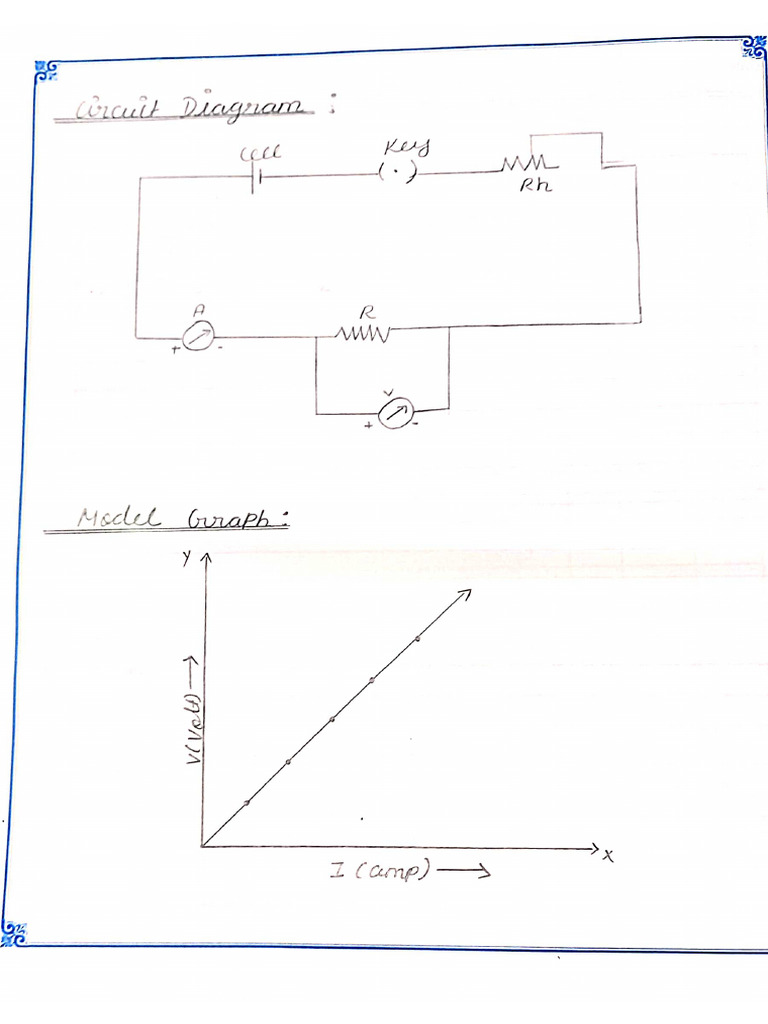 Circuit Diagram :
Cell
Key
(.)
Rh
A
R
+ -
V
+ -
Model Graph :
Y
V(Volt)
X
I (amp)